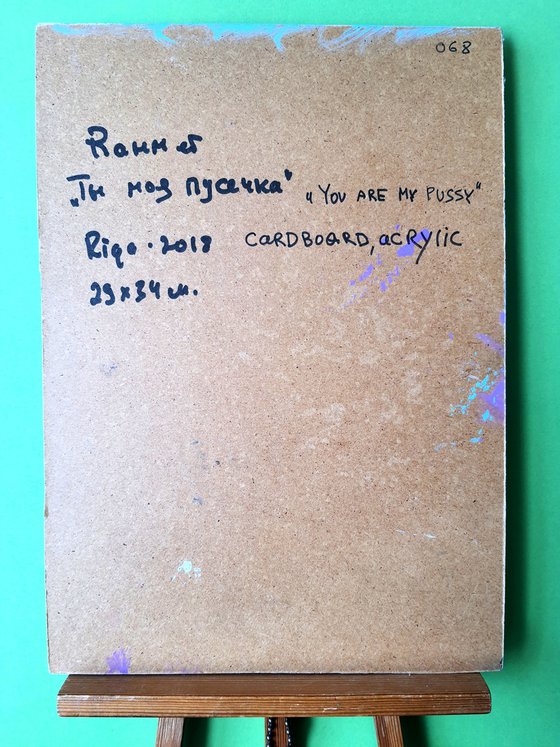 068
Ваннет
„Ты моя пусечка" „YOU ARE MY PUSSY"
Riga · 2018 CARDBOARD, acrylic
29x34 см.